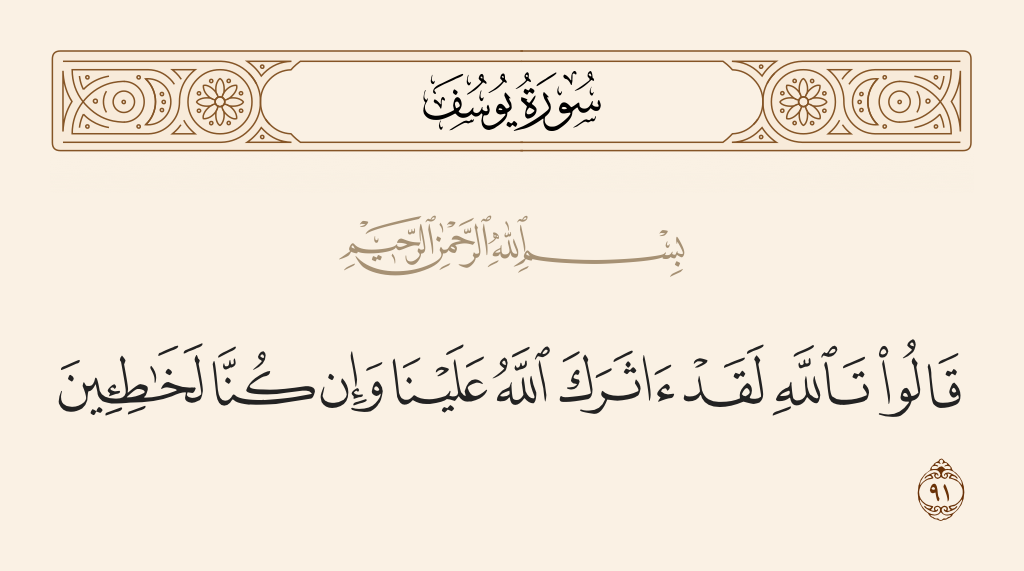 سُورَةُ يُوسُفَ
بِسْمِ ٱللَّهِ ٱلرَّحْمَٰنِ ٱلرَّحِيمِ
قَالُوا۟ تَٱللَّهِ لَقَدْ ءَاثَرَكَ ٱللَّهُ عَلَيْنَا وَإِن كُنَّا لَخَـٰطِـِٔينَ
٩١